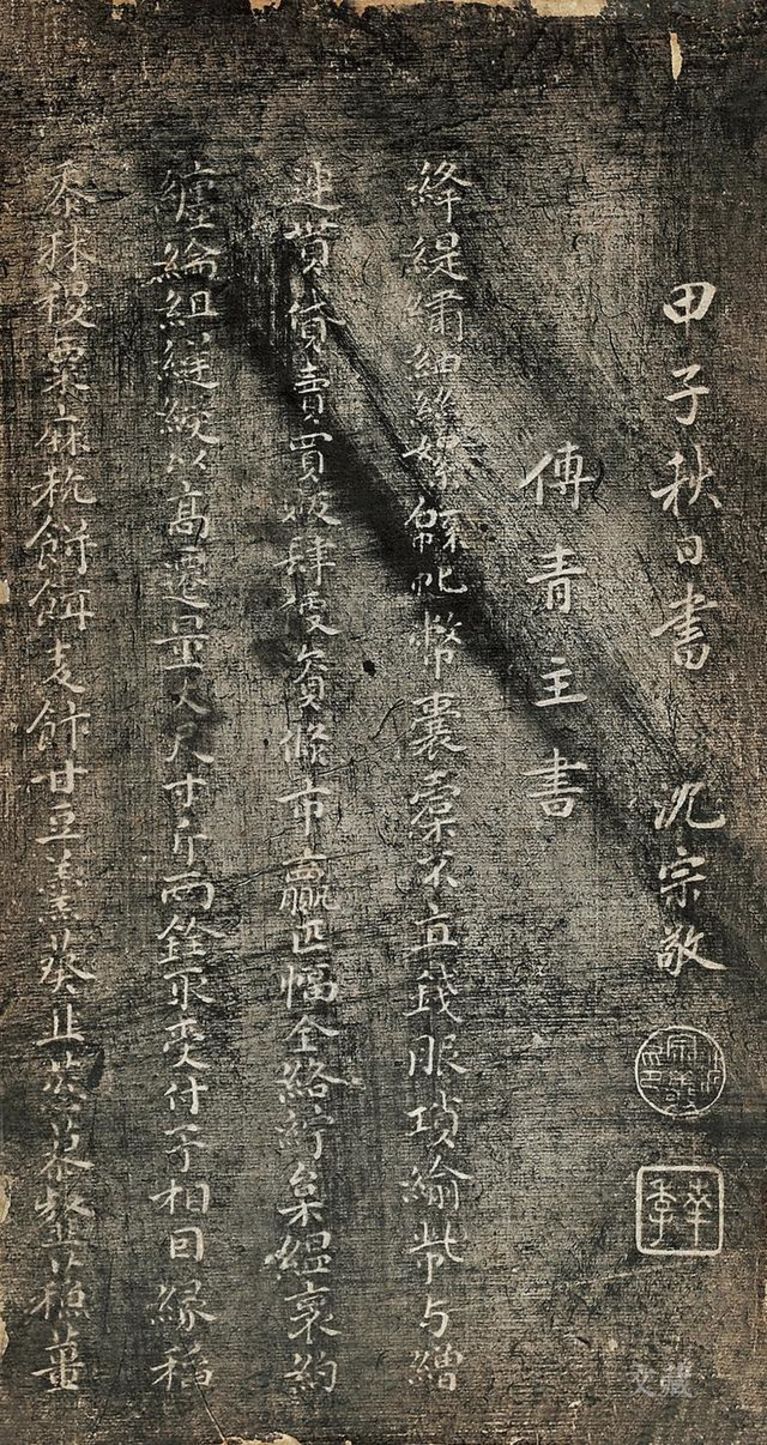 甲子秋日書 沈宗敬
傅青主書
絳緹繡紬絲絮綿 幣囊橐不直錢服瑣緰 与繒
連貰貸賣買販肆 資 市贏匹幅全 紵枲縕裹約
纏綸組縌綬以高遷量丈尺寸斤兩銓取受付予相因緣稻
黍秫稷粟麻秔餅餌麦飰甘豆羹葵韭 薑
文藏